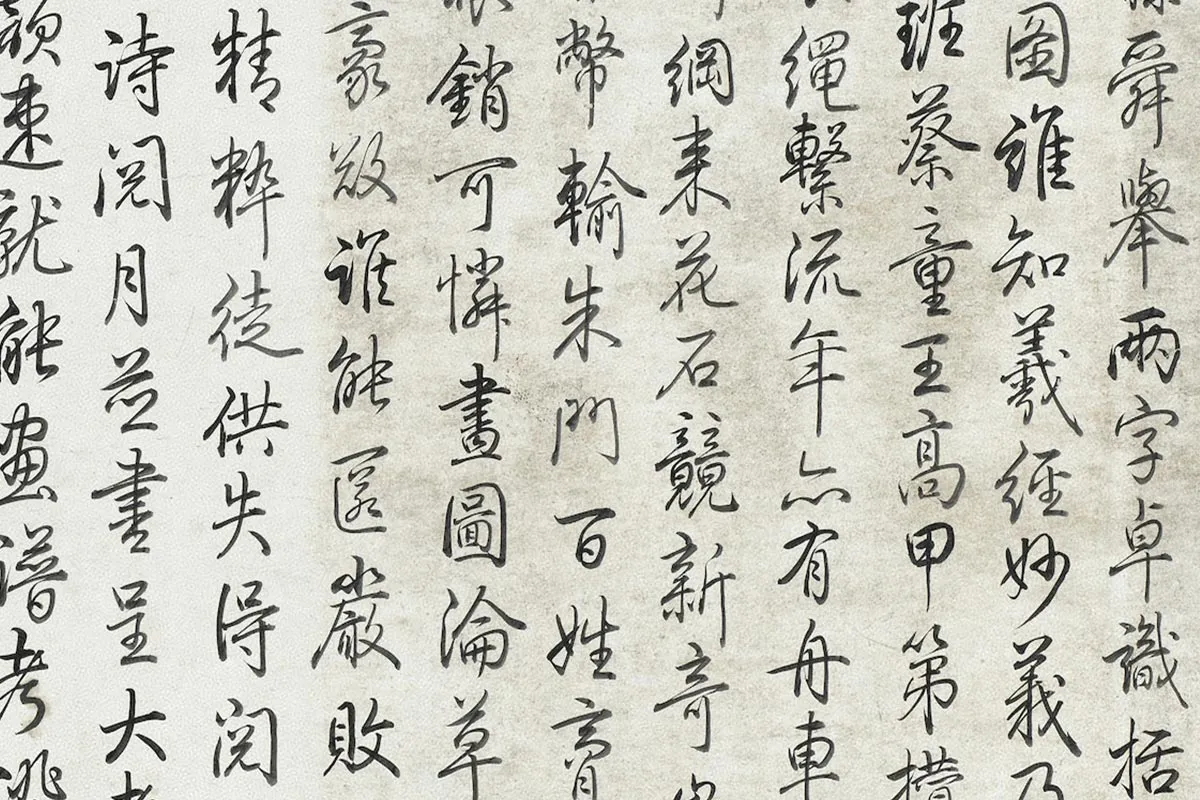 舜舉兩字卓識括
圖誰知羲經妙義乃
班蔡童王高甲第
繩繫流年亦有舟車
綱來花石競新奇
幣輸朱門百姓膏
銷可憐畫圖淪草
豪敚誰能匿嚴敗
精粹徒供失得閱
詩閱月並書呈大
頴速就能画譜考